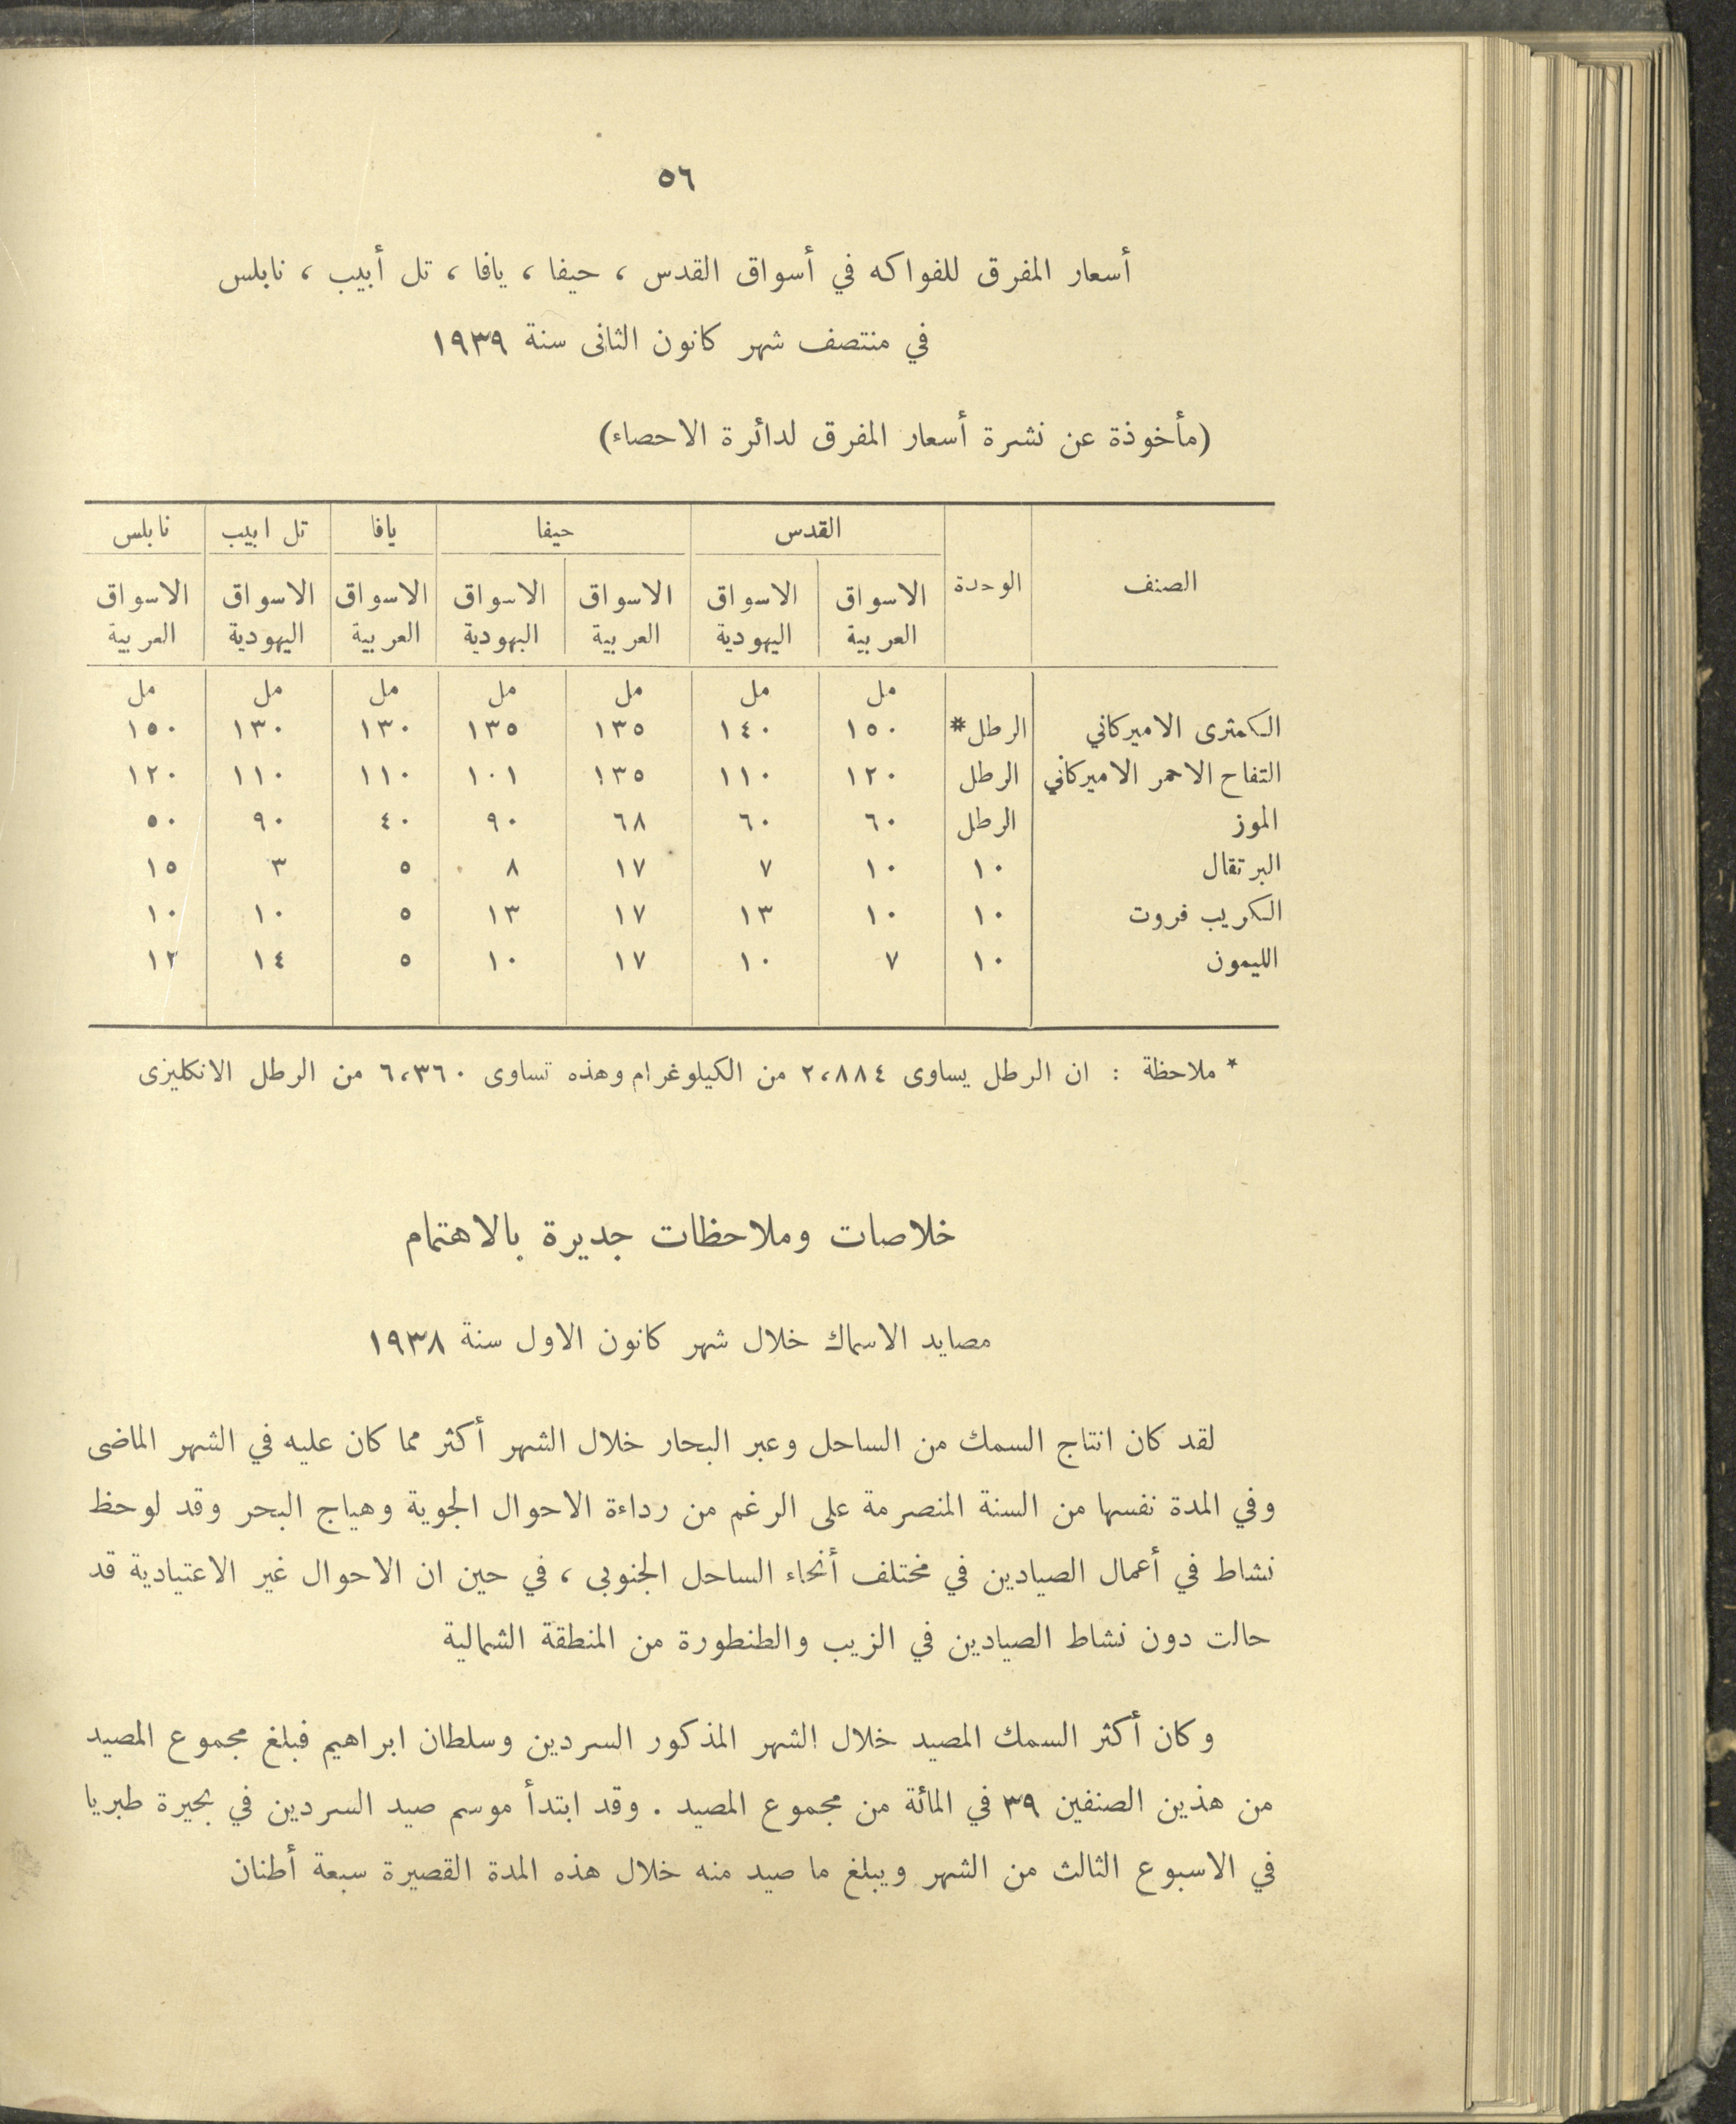 ٥٦
أسعار المفرق للفواكه في أسواق القدس ، حيفا ، يافا ، تل أبيب ، نابلس
في منتصف شهر كانون الثانى سنة ١٩٣٩
(مأخوذة عن نشرة أسعار المفرق لدائرة الاحصاء)
الصنف الوحدة القدس حيفا يافا تل ابيب نابلس
الاسواق الاسواق الاسواق الاسواق الاسواق الاسواق الاسواق
العربية اليهودية العربية اليهودية العربية اليهودية العربية
مل مل مل مل مل مل مل
الكمثرى الاميركاني الرطل* ١٥٠ ١٤٠ ١٣٥ ١٣٥ ١٣٠ ١٣٠ ١٥٠
التفاح الاحمر الاميركاني الرطل ١٢٠ ١١٠ ١٣٥ ١٠١ ١١٠ ١١٠ ١٢٠
الموز الرطل ٦٠ ٦٠ ٦٨ ٩٠ ٤٠ ٩٠ ٥٠
البرتقال ١٠ ١٠ ٧ ١٧ ٨ ٥ ٣ ١٥
الكريب فروت ١٠ ١٠ ١٣ ١٧ ١٣ ٥ ١٠ ١٠
الليمون ١٠ ٧ ١٠ ١٧ ١٠ ٥ ١٤ ١٢
* ملاحظة : ان الرطل يساوى ٢،٨٨٤ من الكيلوغرام وهذه تساوى ٦،٣٦٠ من الرطل الانكليزى
خلاصات وملاحظات جديرة بالاهتمام
مصايد الاسماك خلال شهر كانون الاول سنة ١٩٣٨
لقد كان انتاج السمك من الساحل وعبر البحار خلال الشهر أكثر مما كان عليه في الشهر الماضى
وفي المدة نفسها من السنة المنصرمة على الرغم من رداءة الاحوال الجوية وهياج البحر وقد لوحظ
نشاط في أعمال الصيادين في مختلف أنحاء الساحل الجنوبى ، في حين ان الاحوال غير الاعتيادية قد
حالت دون نشاط الصيادين في الزيب والطنطورة من المنطقة الشمالية
وكان أكثر السمك المصيد خلال الشهر المذكور السردين وسلطان ابراهيم فبلغ مجموع المصيد
من هذين الصنفين ٣٩ في المائة من مجموع المصيد . وقد ابتدأ موسم صيد السردين في بحيرة طبريا
في الاسبوع الثالث من الشهر ويبلغ ما صيد منه خلال هذه المدة القصيرة سبعة أطنان